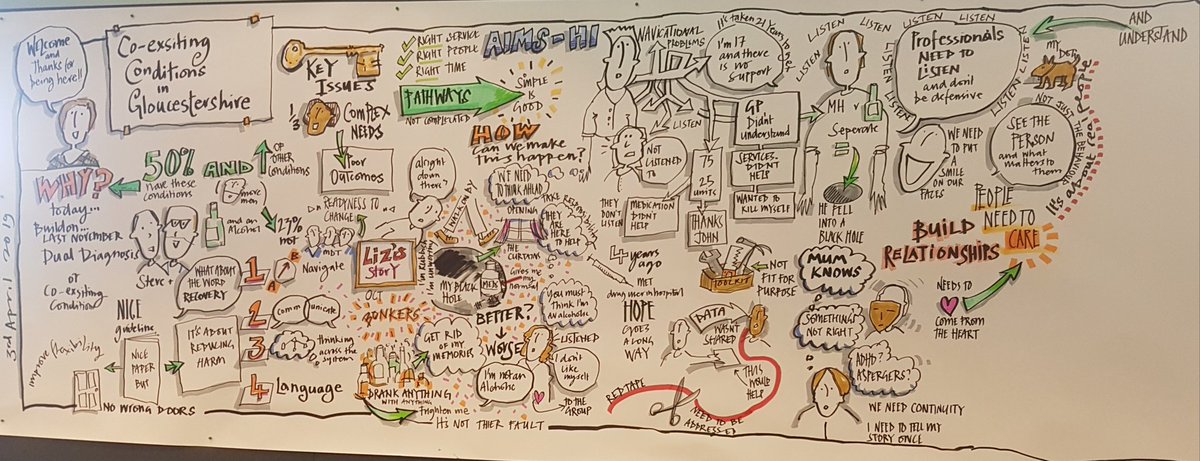 Welcome
and
Thanks for
being here!!
Co-exsiting
Conditions
in
Gloucestershire
KEY
ISSUES
1/3
COMPLEX
NEEDS
Poor
Outcomes
RIGHT SERVICE
RIGHT PEOPLE
RIGHT TIME
AIMS-HI
PATHWAYS
NOT COMPLECATED
SIMPLE
IS
GOOD
HOW
Can we make
this happen?
WHY?
today...
Build on...
LAST NOVEMBER
Dual Diagnosis
or
Co-exsiting
Conditions
3rd April 2019
50% AND
OF
OTHER
CONDITIONS
have these
conditions
more
men
and on
Alcohol
not
Steve +
WHAT ABOUT
THE WORD
RECOVERY
NICE
guideline
NICE
PAPER
BUT
IT'S ABOUT
REDUCING
HARM
improve flexibility
NO WRONG DOORS
1
A
B
Navigate
2
Communicate
3
thinking
across the
system
4 Language
READYNESS TO
CHANGE
MDT
LIZ'S
STORY
OCT
alright
down there?
WALK ON BY
MY BLACK
HOLE
MEN
BONKERS
GET RID
OF MY
MEMORIES
DRANK ANYTHING
WITH ANYTHING
Frighten me
IT'S NOT THIER FAULT
WE NEED
TO THINK AHEAD
OPENING
THE
CURTAINS
TAKE RESPONSIBILITY
THEY
ARE
HERE
TO HELP
Gives me
my
normal
BETTER?
WORSE
you must
Think I'm
AN alcoholic
LISTENED
I'm not an
Alcoholic
I don't
like
myself
TO THE
GROUP
NAVIGATIONAL
PROBLEMS
It's taken 21 Years to get
I'm 17
and there
is no
support
LISTEN
NOT
LISTENED
TO
THEY
DON'T
LISTEN
MEDICATION
DIDN'T
HELP
75
25
units
THANKS
JOHN
GP
Didn't
understand
SERVICES
DIDN'T
HELP
WANTED TO
KILL MYSELF
4 years
ago
MET
drug user in hospital
HOPE
GOES
A LONG
WAY
TOOLKIT
NOT
FIT FOR
PURPOSE
DATA
WASN'T
SHARED
THIS
WOULD
HELP
RED TAPE
NEED TO BE
ADDRESSED
LISTEN LISTEN LISTEN LISTEN LISTEN
LISTEN LISTEN LISTEN LISTEN LISTEN
MH
Seperate
HE FELL
INTO A
BLACK HOLE
Professionals
NEED TO
LISTEN
and don't
be defensive
AND
UNDERSTAND
WE NEED
TO PUT A
SMILE
ON OUR
FACES
SEE THE
PERSON
and what
matters to
them
NOT JUST THE BEHAVIOUR
It's about real people
PEOPLE
NEED TO
CARE
BUILD
RELATIONSHIPS
NEEDS
TO
COME FROM
THE HEART
MUM
KNOWS
SOMETHINGS
NOT RIGHT
ADHD?
ASPERGERS?
WE NEED CONTINUITY
I NEED TO TELL MY
STORY ONCE